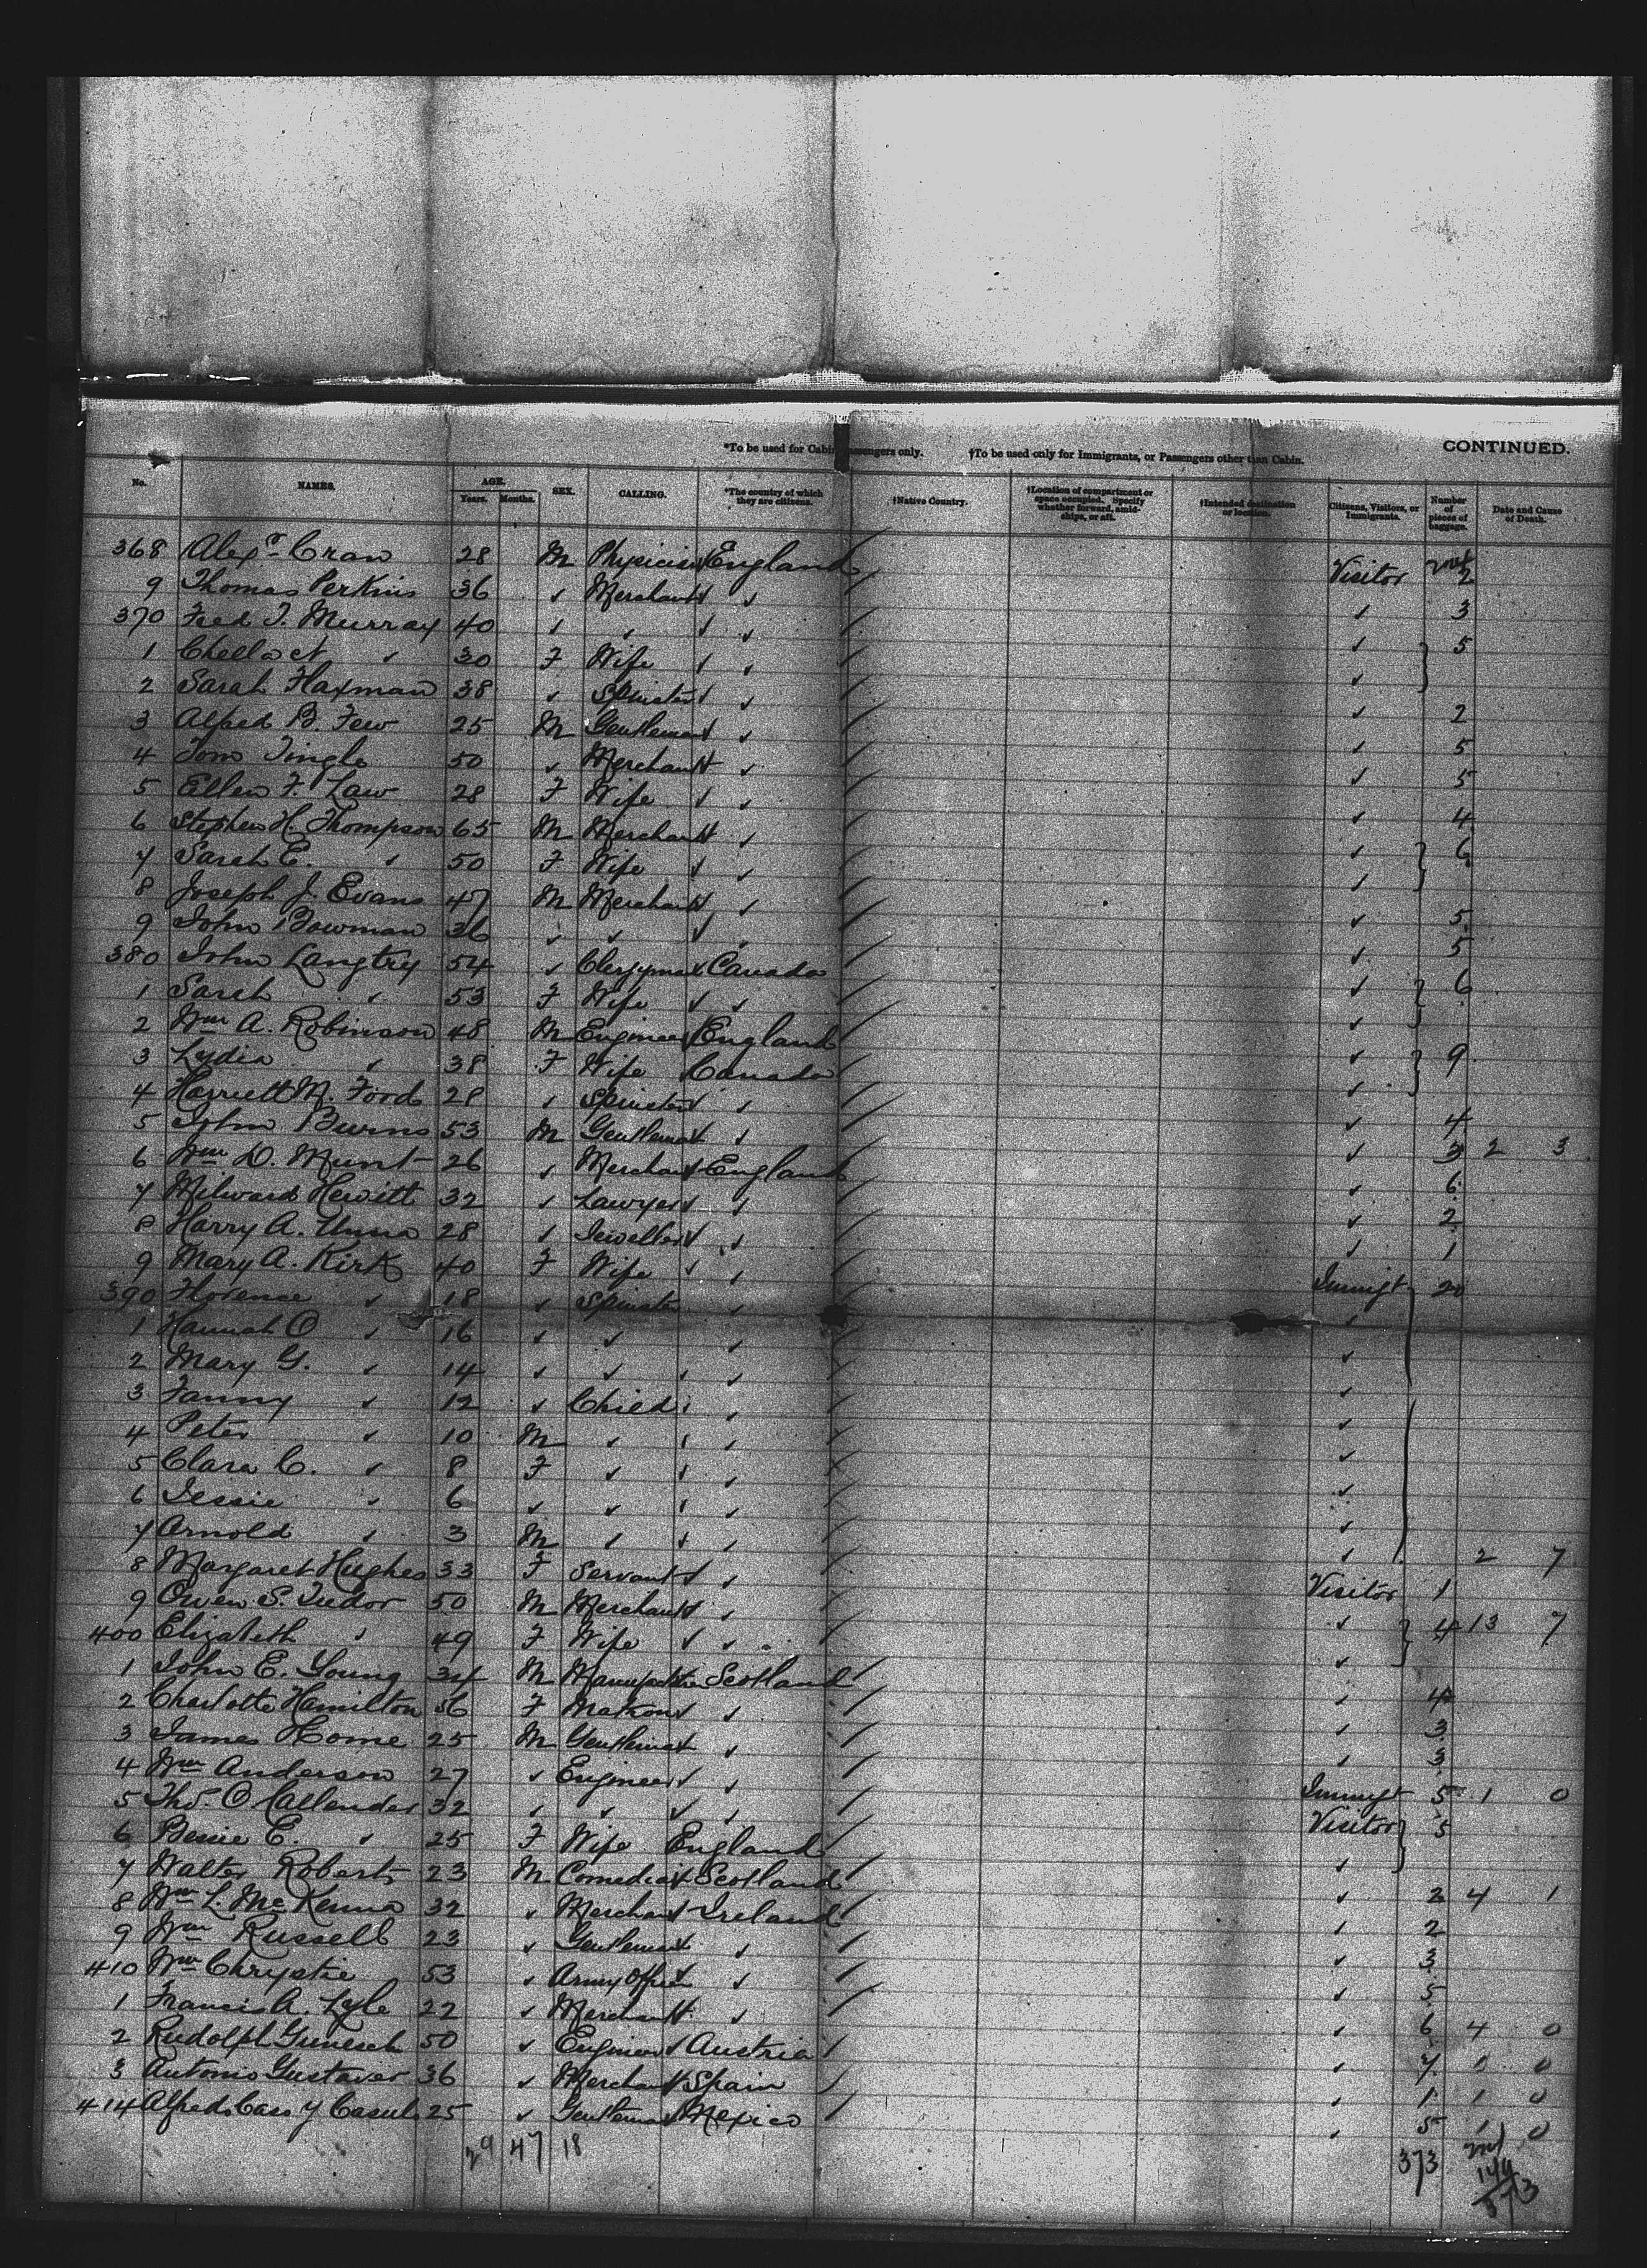 *To be used for Cabin Passengers only. †To be used only for Immigrants, or Passengers other than Cabin. CONTINUED.
No. NAMES. AGE. Years. Months. SEX. CALLING. *The country of which they are citizens. †Native Country. †Location of compartment or space occupied. Specify whether forward, amidships, or aft. †Intended destination or location. Citizens, Visitors, or Immigrants. Number of pieces of baggage. Date and Cause of Death.
368 Alexr Cran 28 M Physician England Visitor 2
9 Thomas Perkins 36 ✓ Merchant ✓ ✓ ✓ 3
370 Fred T. Murray 40 ✓ ✓ ✓ ✓ ✓ 5
1 ✓ 30 F Wife ✓ ✓ ✓
2 Sarah Flaxman 38 ✓ Spinster ✓ ✓ 2
3 Alfred B. Few 25 M Gentleman ✓ ✓ 5
4 Tom Tingle 50 ✓ Merchant ✓ ✓ 5
5 Ellen F. Law 28 F Wife ✓ ✓ ✓ 4
6 Stephen H. Thompson 65 M Merchant ✓ ✓ 6
7 Sarah E. ✓ 50 F Wife ✓ ✓ ✓
8 Joseph J. Evans 47 M Merchant ✓ ✓ 5
9 John Bowman 36 ✓ ✓ ✓ ✓ ✓ 5
380 John Langtry 54 ✓ Clergyman Canada ✓ 6
1 Sarah ✓ 53 F Wife ✓ ✓ ✓
2 Wm A. Robinson 48 M Engineer England ✓ 9
3 Lydia ✓ 38 F Wife Canada ✓
4 Harriett M. Ford 28 ✓ Spinster ✓ ✓ 4
5 John Burns 53 M Gentleman ✓ ✓ 3 2 3
6 Wm D. Munt 26 ✓ Merchant England ✓ 6
7 Milward Hewitt 32 ✓ Lawyer ✓ ✓ 2
8 Harry A. 28 ✓ Jeweller ✓ ✓ 1
9 Mary A. Kirk 40 F Wife ✓ ✓ Immigt 20
390 Florence ✓ 18 ✓ Spinster ✓ ✓
1 Hannah O ✓ 16 ✓ ✓ ✓ ✓
2 Mary G. ✓ 14 ✓ ✓ ✓ ✓ ✓
3 Fanny ✓ 12 ✓ Child ✓ ✓ ✓
4 Peter ✓ 10 M ✓ ✓ ✓ ✓
5 Clara C. ✓ 8 F ✓ ✓ ✓ ✓
6 Jessie ✓ 6 ✓ ✓ ✓ ✓ ✓
7 Arnold ✓ 3 M ✓ ✓ ✓ ✓ 2 7
8 Margaret Hughes 33 F Servant ✓ ✓ Visitor 1
9 Owen S. Tudor 50 M Merchant ✓ ✓ 4 13 7
400 Elizabeth ✓ 49 F Wife ✓ ✓ ✓
1 John E. Young 34 M Scotland ✓ 4
2 Charlotte Hamilton 56 F Matron ✓ ✓ 3
3 James Home 25 M Gentleman ✓ ✓ 3
4 Wm Anderson 27 ✓ Engineer ✓ ✓ Immigt 5 1 0
5 Thos. O Callender 32 ✓ ✓ ✓ ✓ Visitor 5
6 Bessie E. ✓ 25 F Wife England ✓
7 Walter Roberts 23 M Comedian Scotland ✓ 2 4 1
8 Wm L. McKenna 32 ✓ Merchant Ireland ✓ 2
9 Wm Russell 23 ✓ Gentleman ✓ ✓ 3
410 Wm Chrystie 53 ✓ Army Officer ✓ ✓ 5
1 Francis A. Lyle 22 ✓ Merchant ✓ ✓ 6 4 0
2 Rudolph 50 ✓ Engineer Austria ✓ 7 0
3 Antonio Gustaver 36 ✓ Merchant Spain ✓ 1 1 0
414 Alfredo Caso y 25 ✓ Gentleman Mexico ✓ 5 1 0
29 47 18 373